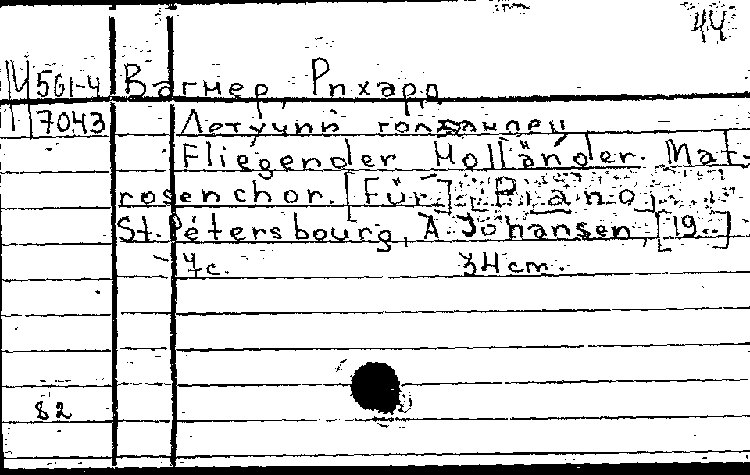 44
М 561-4 Вагнер, Рихард
7043 Летучий голландец
Fliegender Holländer. Mat-
rosenchor. [Für] Piano,
St. Pétersbourg, A. Johansen, [19..]
7с. 34cm.
82